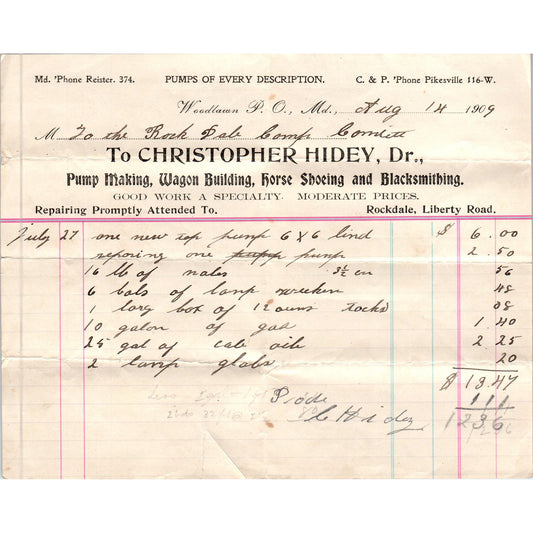 Md. 'Phone Reister. 374. PUMPS OF EVERY DESCRIPTION. C. & P. 'Phone Pikesville 116-W.
Woodlawn P. O., Md., Aug 14 1909
M To the Rock Dale Camp
To CHRISTOPHER HIDEY, Dr.,
Pump Making, Wagon Building, Horse Shoeing and Blacksmithing.
GOOD WORK A SPECIALTY. MODERATE PRICES.
Repairing Promptly Attended To. Rockdale, Liberty Road.
July 27 one new top pump 6 x 6 lind $ 6.00
reporing one pump pump 2.50
16 lb of nales 3½ cn 56
6 bals of lamp 48
1 larg box of 1½ ouns tacks 08
10 galon of gas 1.40
25 gal of cole oile 2 25
2 lamp globs 20
$ 13.47
Less
1 11
C Hidey 12 36